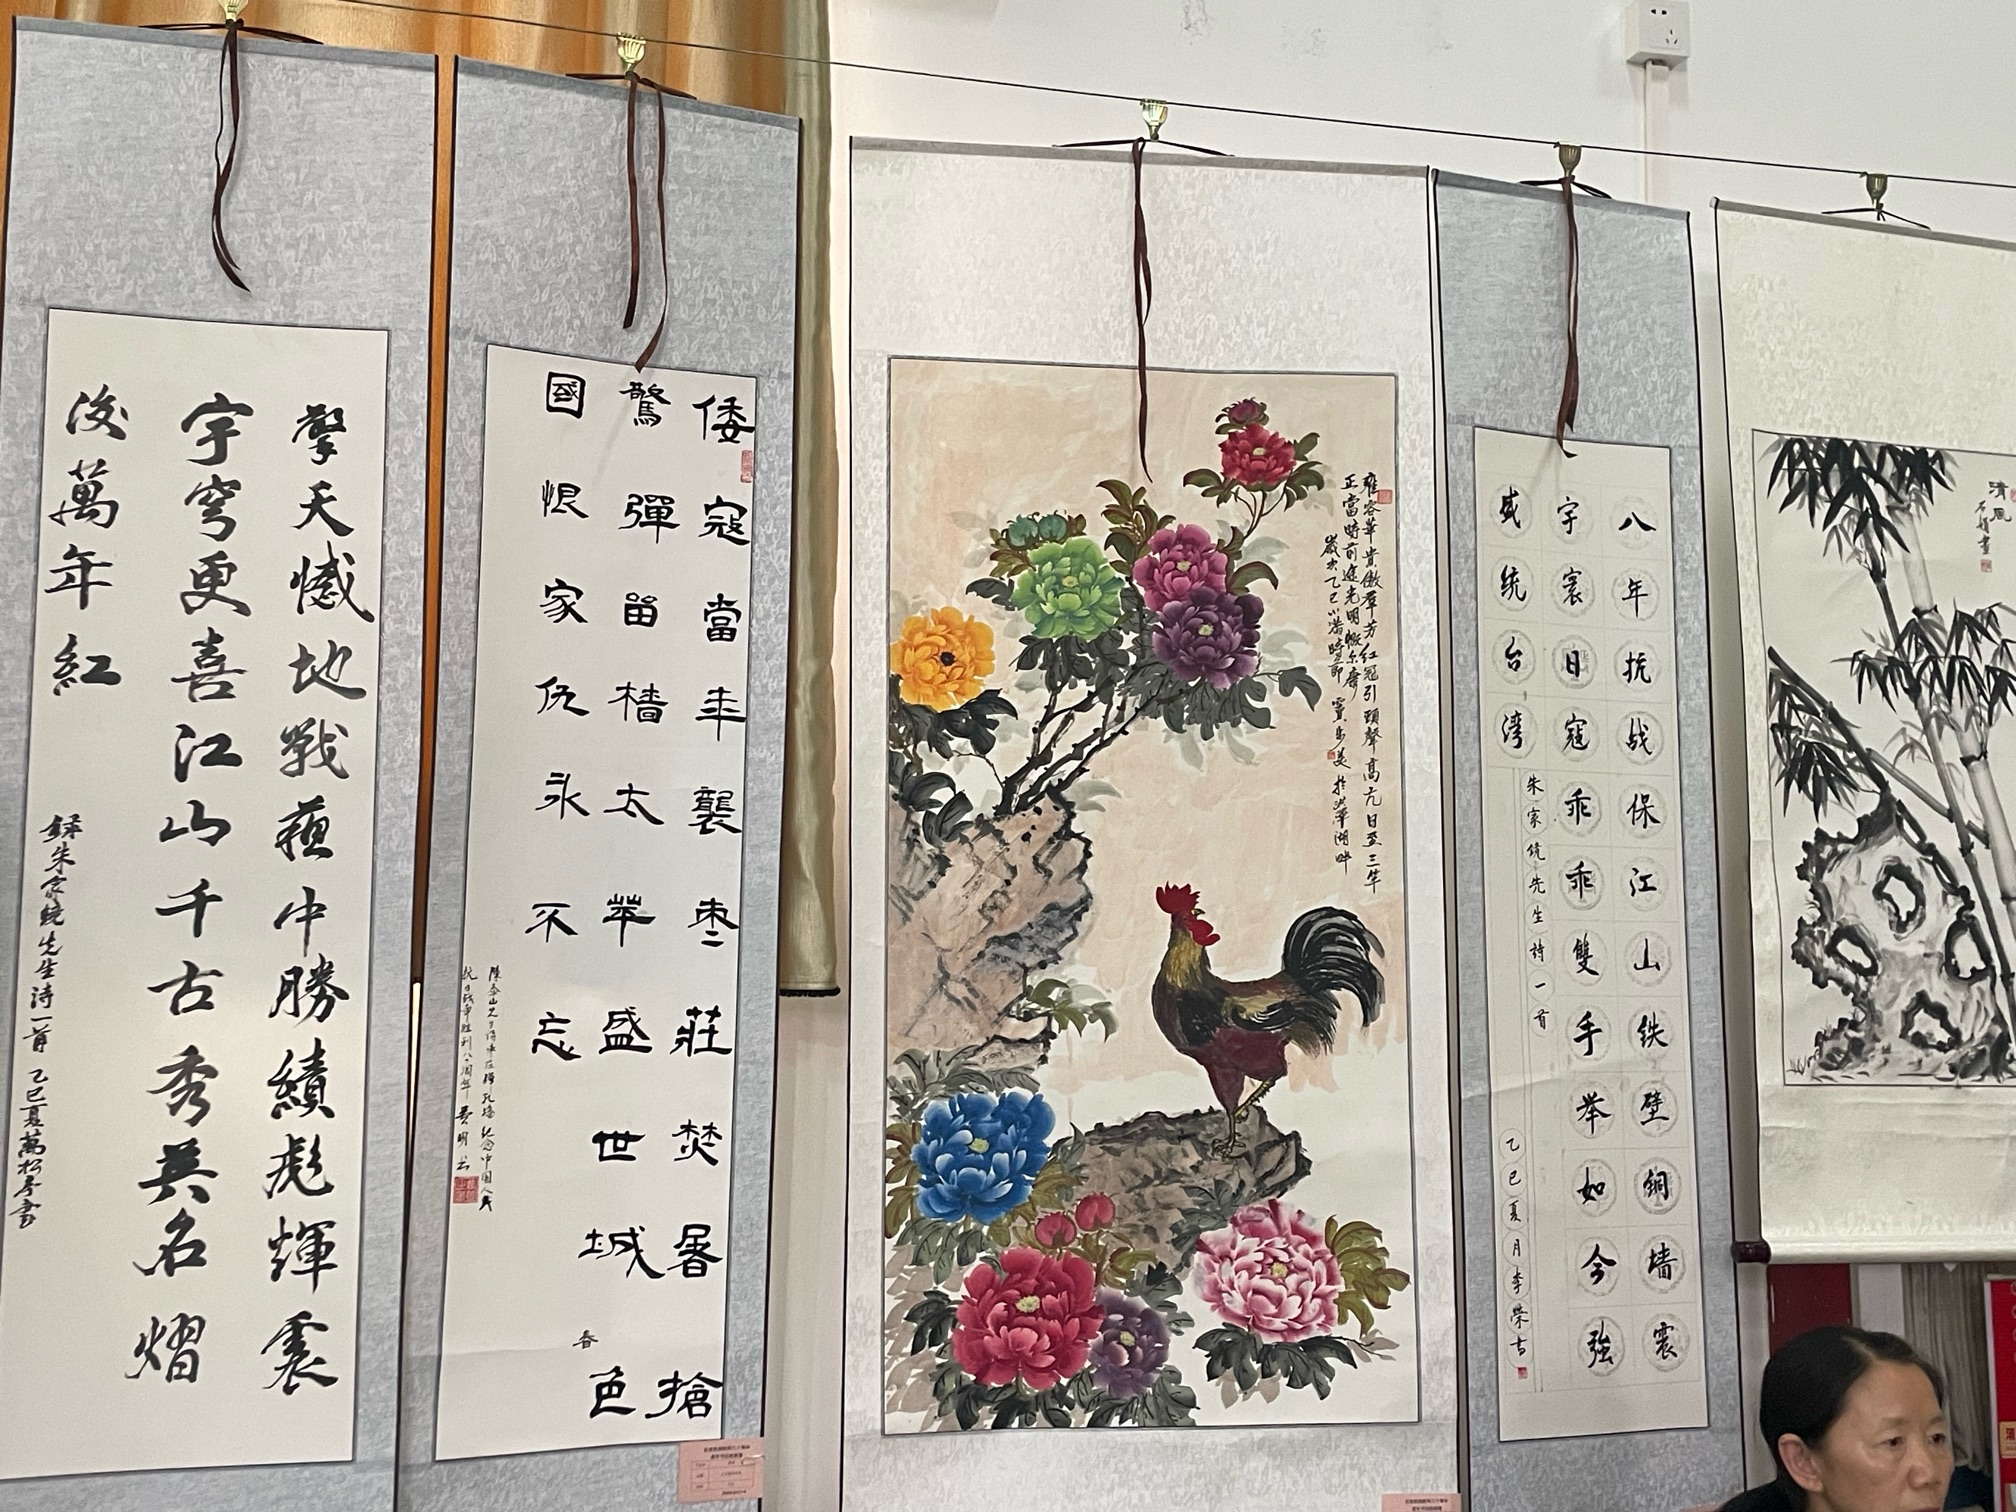 擎天憾地戰蘋中勝績彪輝震
宇穹更喜江山千古秀英名熠
萬年紅
錄朱家統先生詩一首 乙巳夏萬松年書
倭寇當年襲枣莊焚屠搶
驚彈留墙太苹盛世城色
春
國恨家仇永不忘
纪念中国人民
抗日战争胜利八十周年
雍容華貴傲群芳紅冠引頸聲高亢日至三竿
正當時前途光明
歲次乙巳小满時節 於洪澤湖畔
八年抗战保江山铁壁铜墙震
宇寰日寇乖乖雙手举如今強
盛统台湾
朱家统先生诗一首
乙巳夏月李荣书
清風